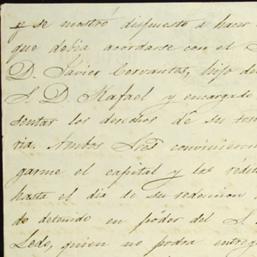 y se mostró dispuesto a hacer
que debia acordarse con el
D. Javier Cervantes, hijo de
S. D. Rafael y encargado
sentar los derechos de su
ria. Ambos Sres convinieron
garme el capital y los rédi
hasta el dia de su redencion
do detenido en poder del S.
Ledo, quien no podra entreg